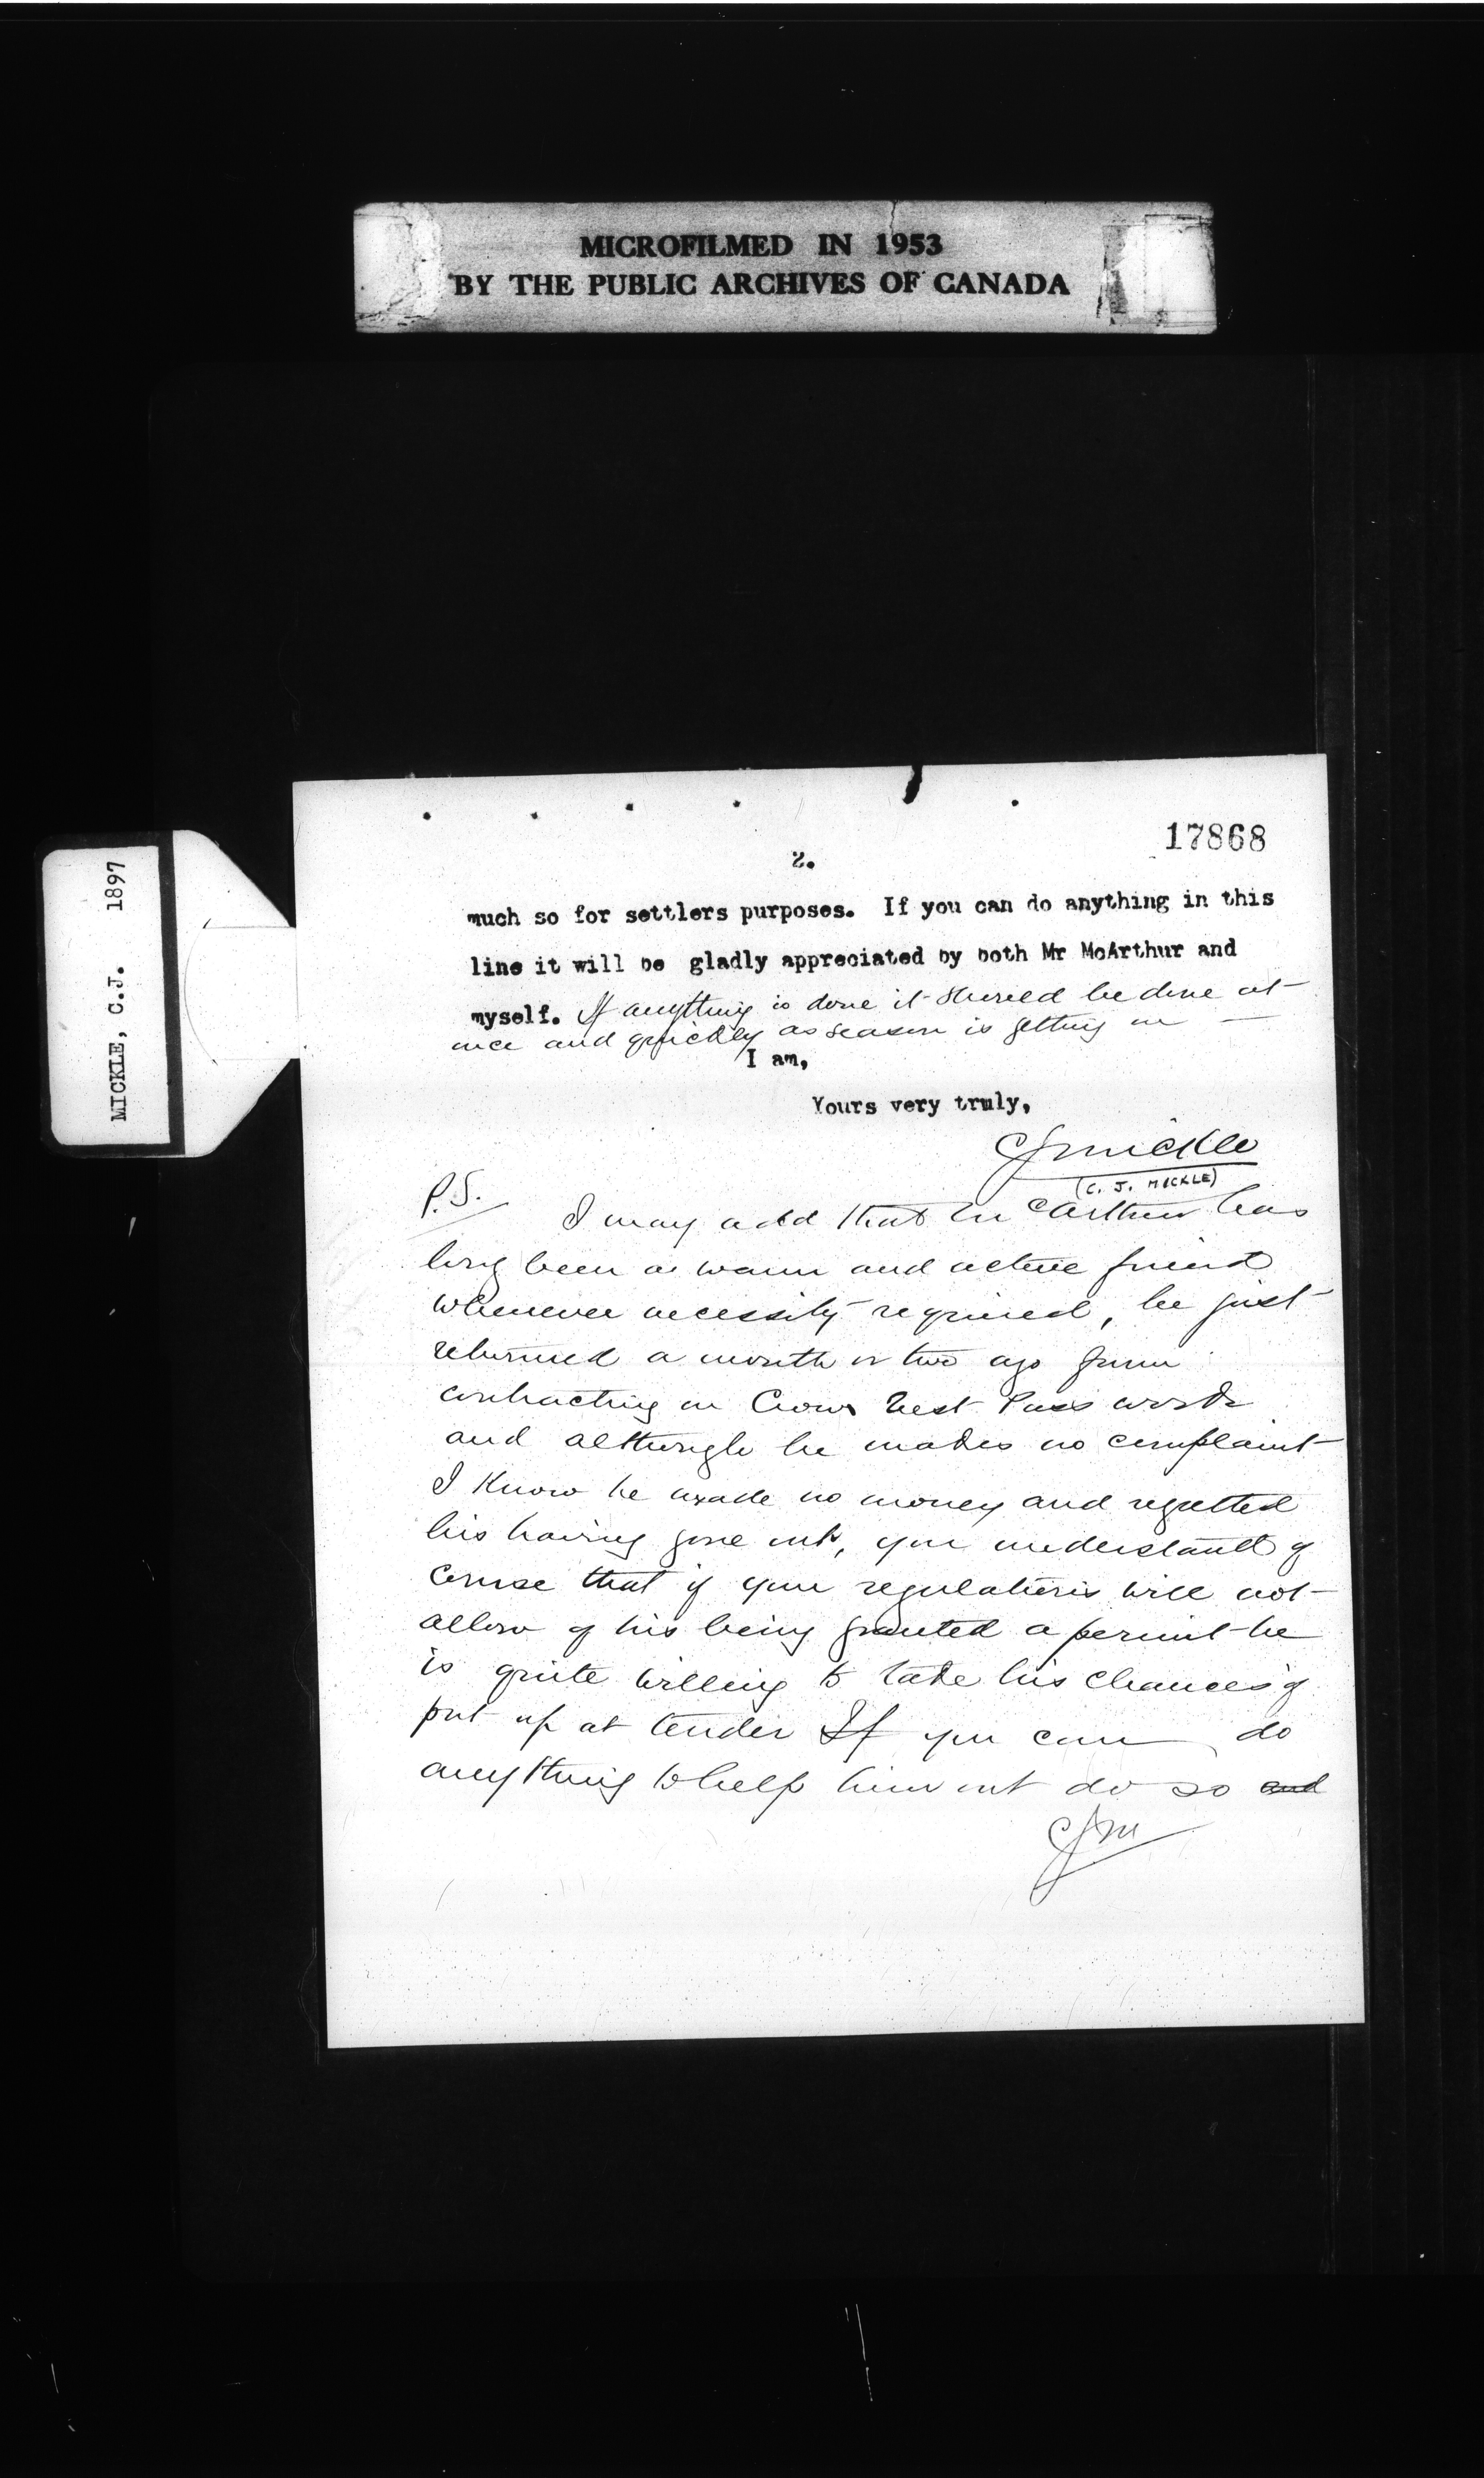 MICROFILMED IN 1953
BY THE PUBLIC ARCHIVES OF CANADA
MICKLE, C.J. 1897
17868
2.
much so for settlers purposes. If you can do anything in this
line it will be gladly appreciated by both Mr McArthur and
myself. If anything is done it should be done at
once and quickly as season is getting on —
I am,
Yours very truly,
CJMickle
(C. J. MICKLE)
P.S.
I may add that McArthur has
long been a warm and active friend
whenever necessity required, he just
returned a month or two ago from
contracting on Crows Nest Pass work
and although he makes no complaint
I know he made no money and regretted
his having gone out, you understand of
course that if your regulations will not
allow of his being granted a permit he
is quite willing to take his chances if
put up at tender If you can do
anything to help him out do so and
CJM